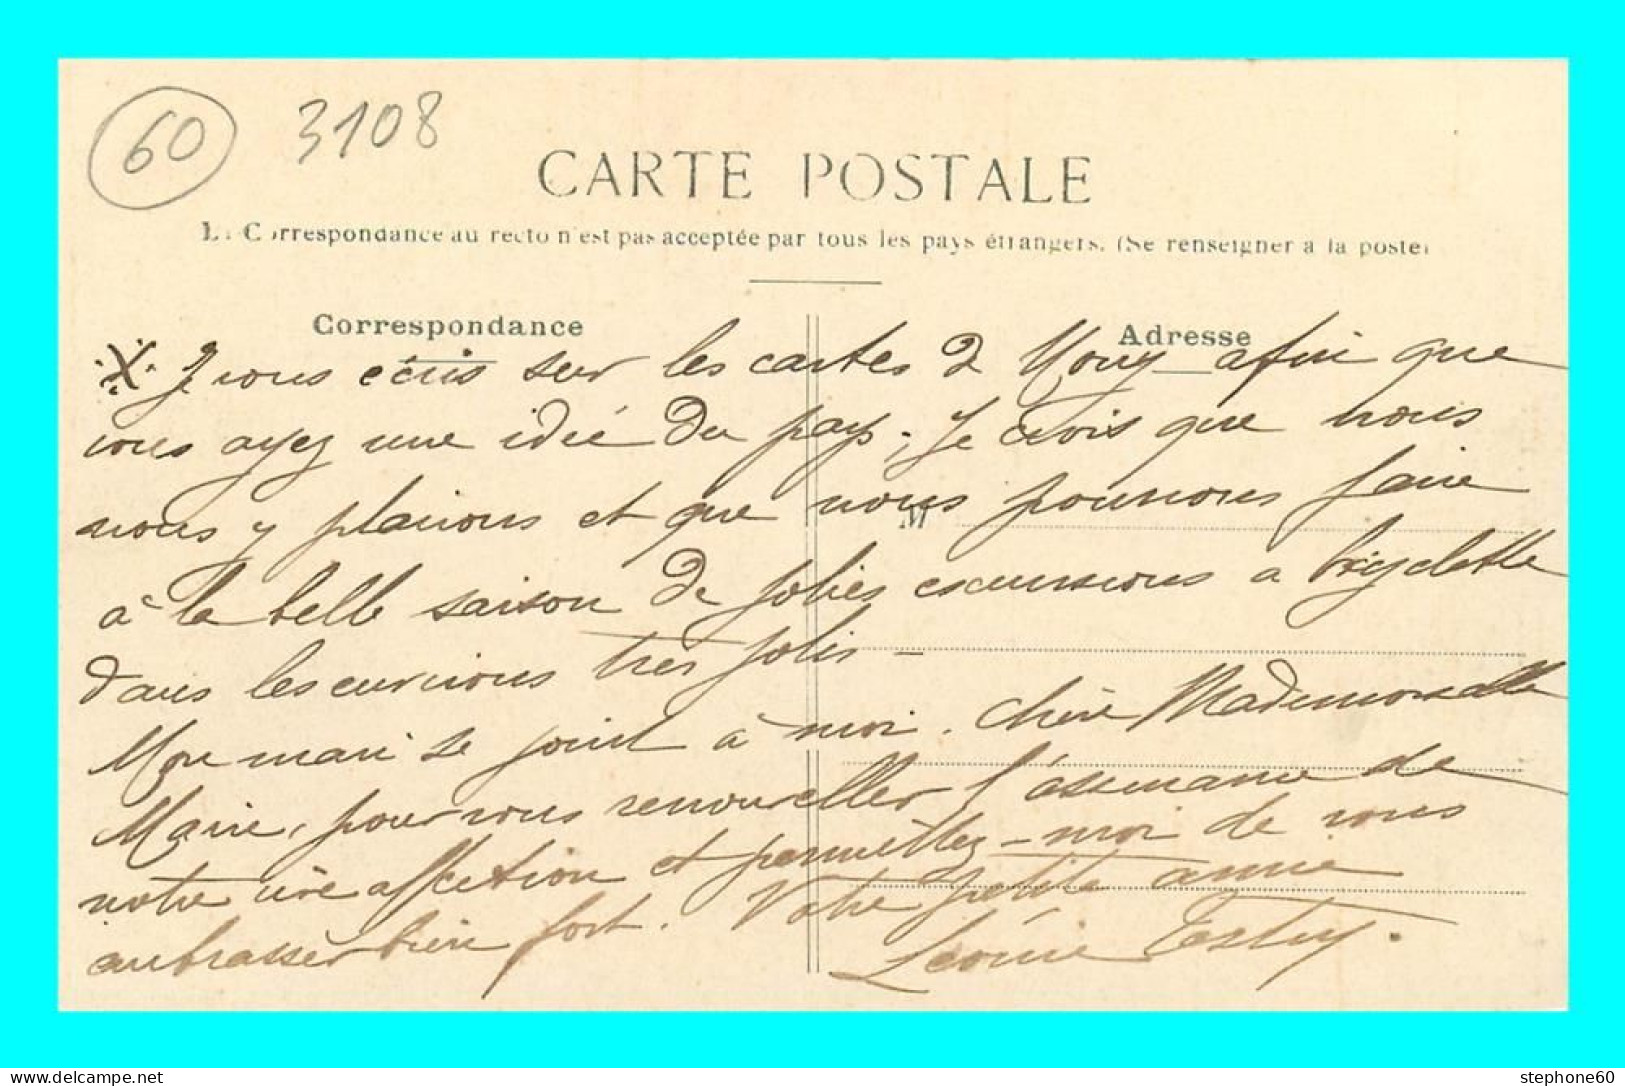 60 3108
CARTE POSTALE
La Correspondance au recto n'est pas acceptée par tous les pays étrangers. (Se renseigner à la poste)
Correspondance
Adresse
X. J vous écris sur les cartes d Mouy afin que
vous ayez une idée du pays. Je crois que nous
nous y plairons et que nous pourrons faire
M
à la belle saison de jolies escursions a bicyclette
dans les environs tres jolis —
Mon mari se joint à moi. Chère Mademoiselle
Marie, pour vous renouveller l'assurance de
notre vive affection et permettez-moi de vous
embrasser bien fort. Votre petite amie
Léonie
stephone60